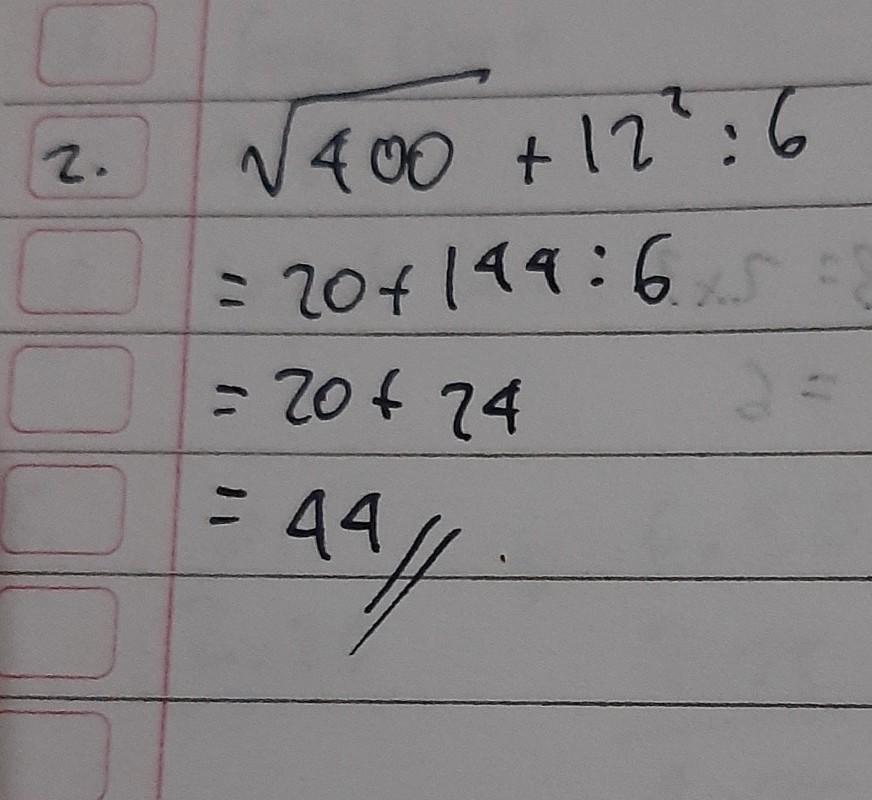 2. √400 + 12² : 6
= 20 + 144 : 6
= 20 + 24
= 44 //